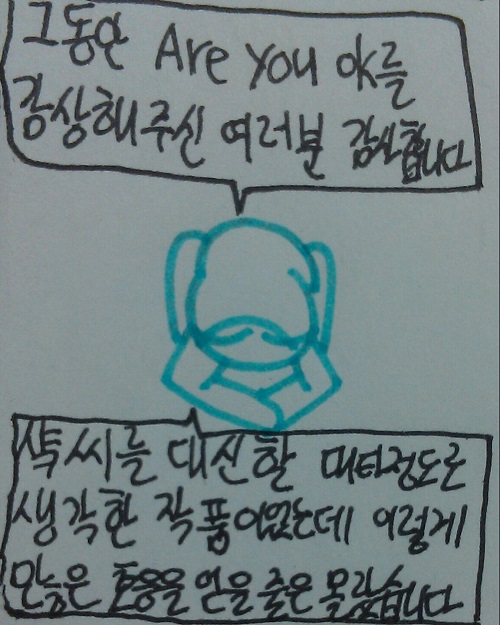 그동안 Are you ok를
감상해 주신 여러분 감사합니다
싹씨를 대신할 땜타정도로
생각한 작품이었는데 이렇게
많은 호응을 얻을 줄은 몰랐습니다